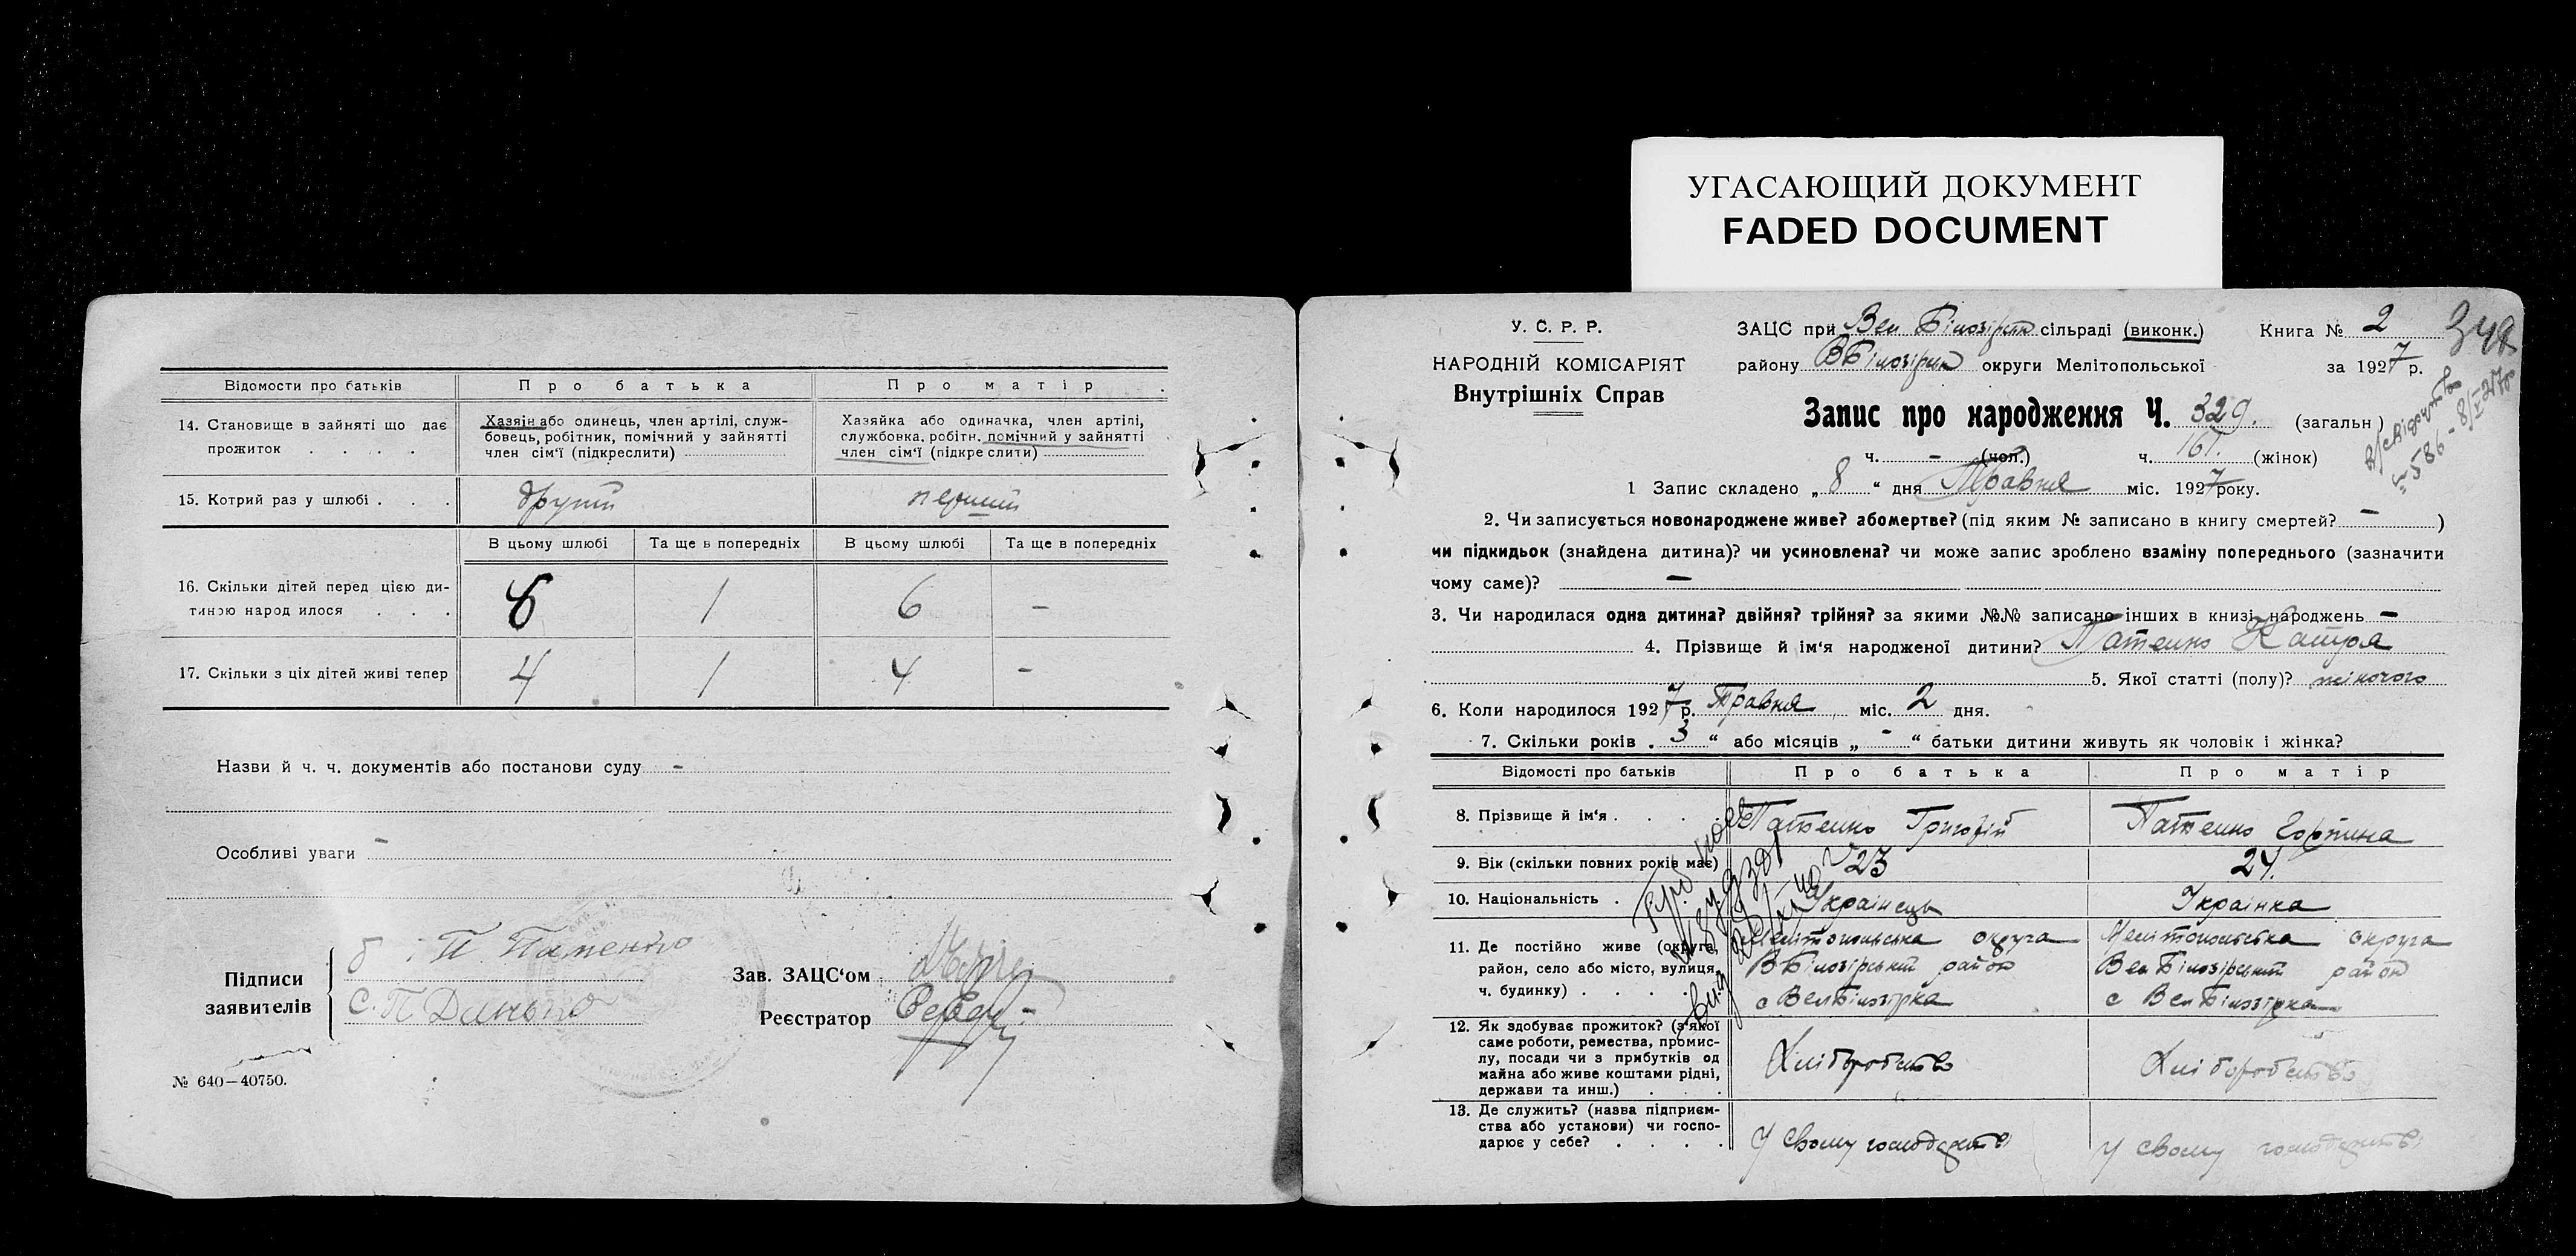 УГАСАЮЩИЙ ДОКУМЕНТ
FADED DOCUMENT
Відомости про батьків
Про батька
Про матір
14. Становище в зайняті що дає прожиток . . . .
Хазяїн або одинець, член артілі, служ-
бовець, робітник, помічний у зайнятті
член сім'ї (підкреслити)
Хазяйка або одиначка, член артілі,
службовка, робітн. помічний у зайнятті
член сім'ї (підкреслити)
15. Котрий раз у шлюбі . . .
другий
перший
В цьому шлюбі
Та ще в попередніх
В цьому шлюбі
Та ще в попередніх
16. Скільки дітей перед цією ди-
тиною народилося . . .
1
6
-
17. Скільки з ціх дітей живі тепер
4
1
4
-
Назви й ч. ч. документів або постанови суду -
Особливі уваги -
Підписи
заявителів
П. Патенко
С. П Данько
Зав. ЗАЦС'ом
Реєстратор
№ 640—40750.
У. С. Р. Р.
НАРОДНІЙ КОМІСАРІЯТ
Внутрішніх Справ
ЗАЦС при Вел Білозірск сільраді (виконк.)
Книга № 2
348
району ВБілозірск округи Мелітопольської
за 1927 р.
Запис про народження Ч. 329. (загальн)
ч. - (чол.) ч. 161. (жінок)
№ 586 - 8/V 27р
1 Запис складено „8" дня Травня міс. 1927 року.
2. Чи записується новонароджене живе? або мертве? (під яким № записано в книгу смертей? - )
чи підкидьок (знайдена дитина)? чи усиновлена? чи може запис зроблено взаміну попереднього (зазначити
чому саме)? -
3. Чи народилася одна дитина? двійня? трійня? за якими №№ записано інших в книзі народжень -
4. Прізвище й ім'я народженої дитини? Патенко Катря
5. Якої статті (полу)? жіночого
6. Коли народилося 1927 р. Травня міс. 2 дня.
7. Скільки років „3" або місяців „-" батьки дитини живуть як чоловік і жінка?
Відомості про батьків
Про батька
Про матір
8. Прізвище й ім'я . . . .
Патенко Григорій
Патенко Горпина
9. Вік (скільки повних років має)
23
24.
10. Національність .
Українець
Українка
11. Де постійно живе (округа,
район, село або місто, вулиця,
ч. будинку) . . . .
Мелітопольська округа
ВБілозірський район
с ВелБілозірка
Мелітопольська округа
Вел Білозірський район
с Вел Білозірка
12. Як здобуває прожиток? (з якої
саме роботи, ремества, промис-
лу, посади чи з прибутків од
майна або живе коштами рідні,
держави та инш.) . . .
Хліборобство
Хліборобство
13. Де служить? (назва підприєм-
ства або установи) чи госпо-
дарює у себе? . . . .
У свому господарстві
У свому господарстві